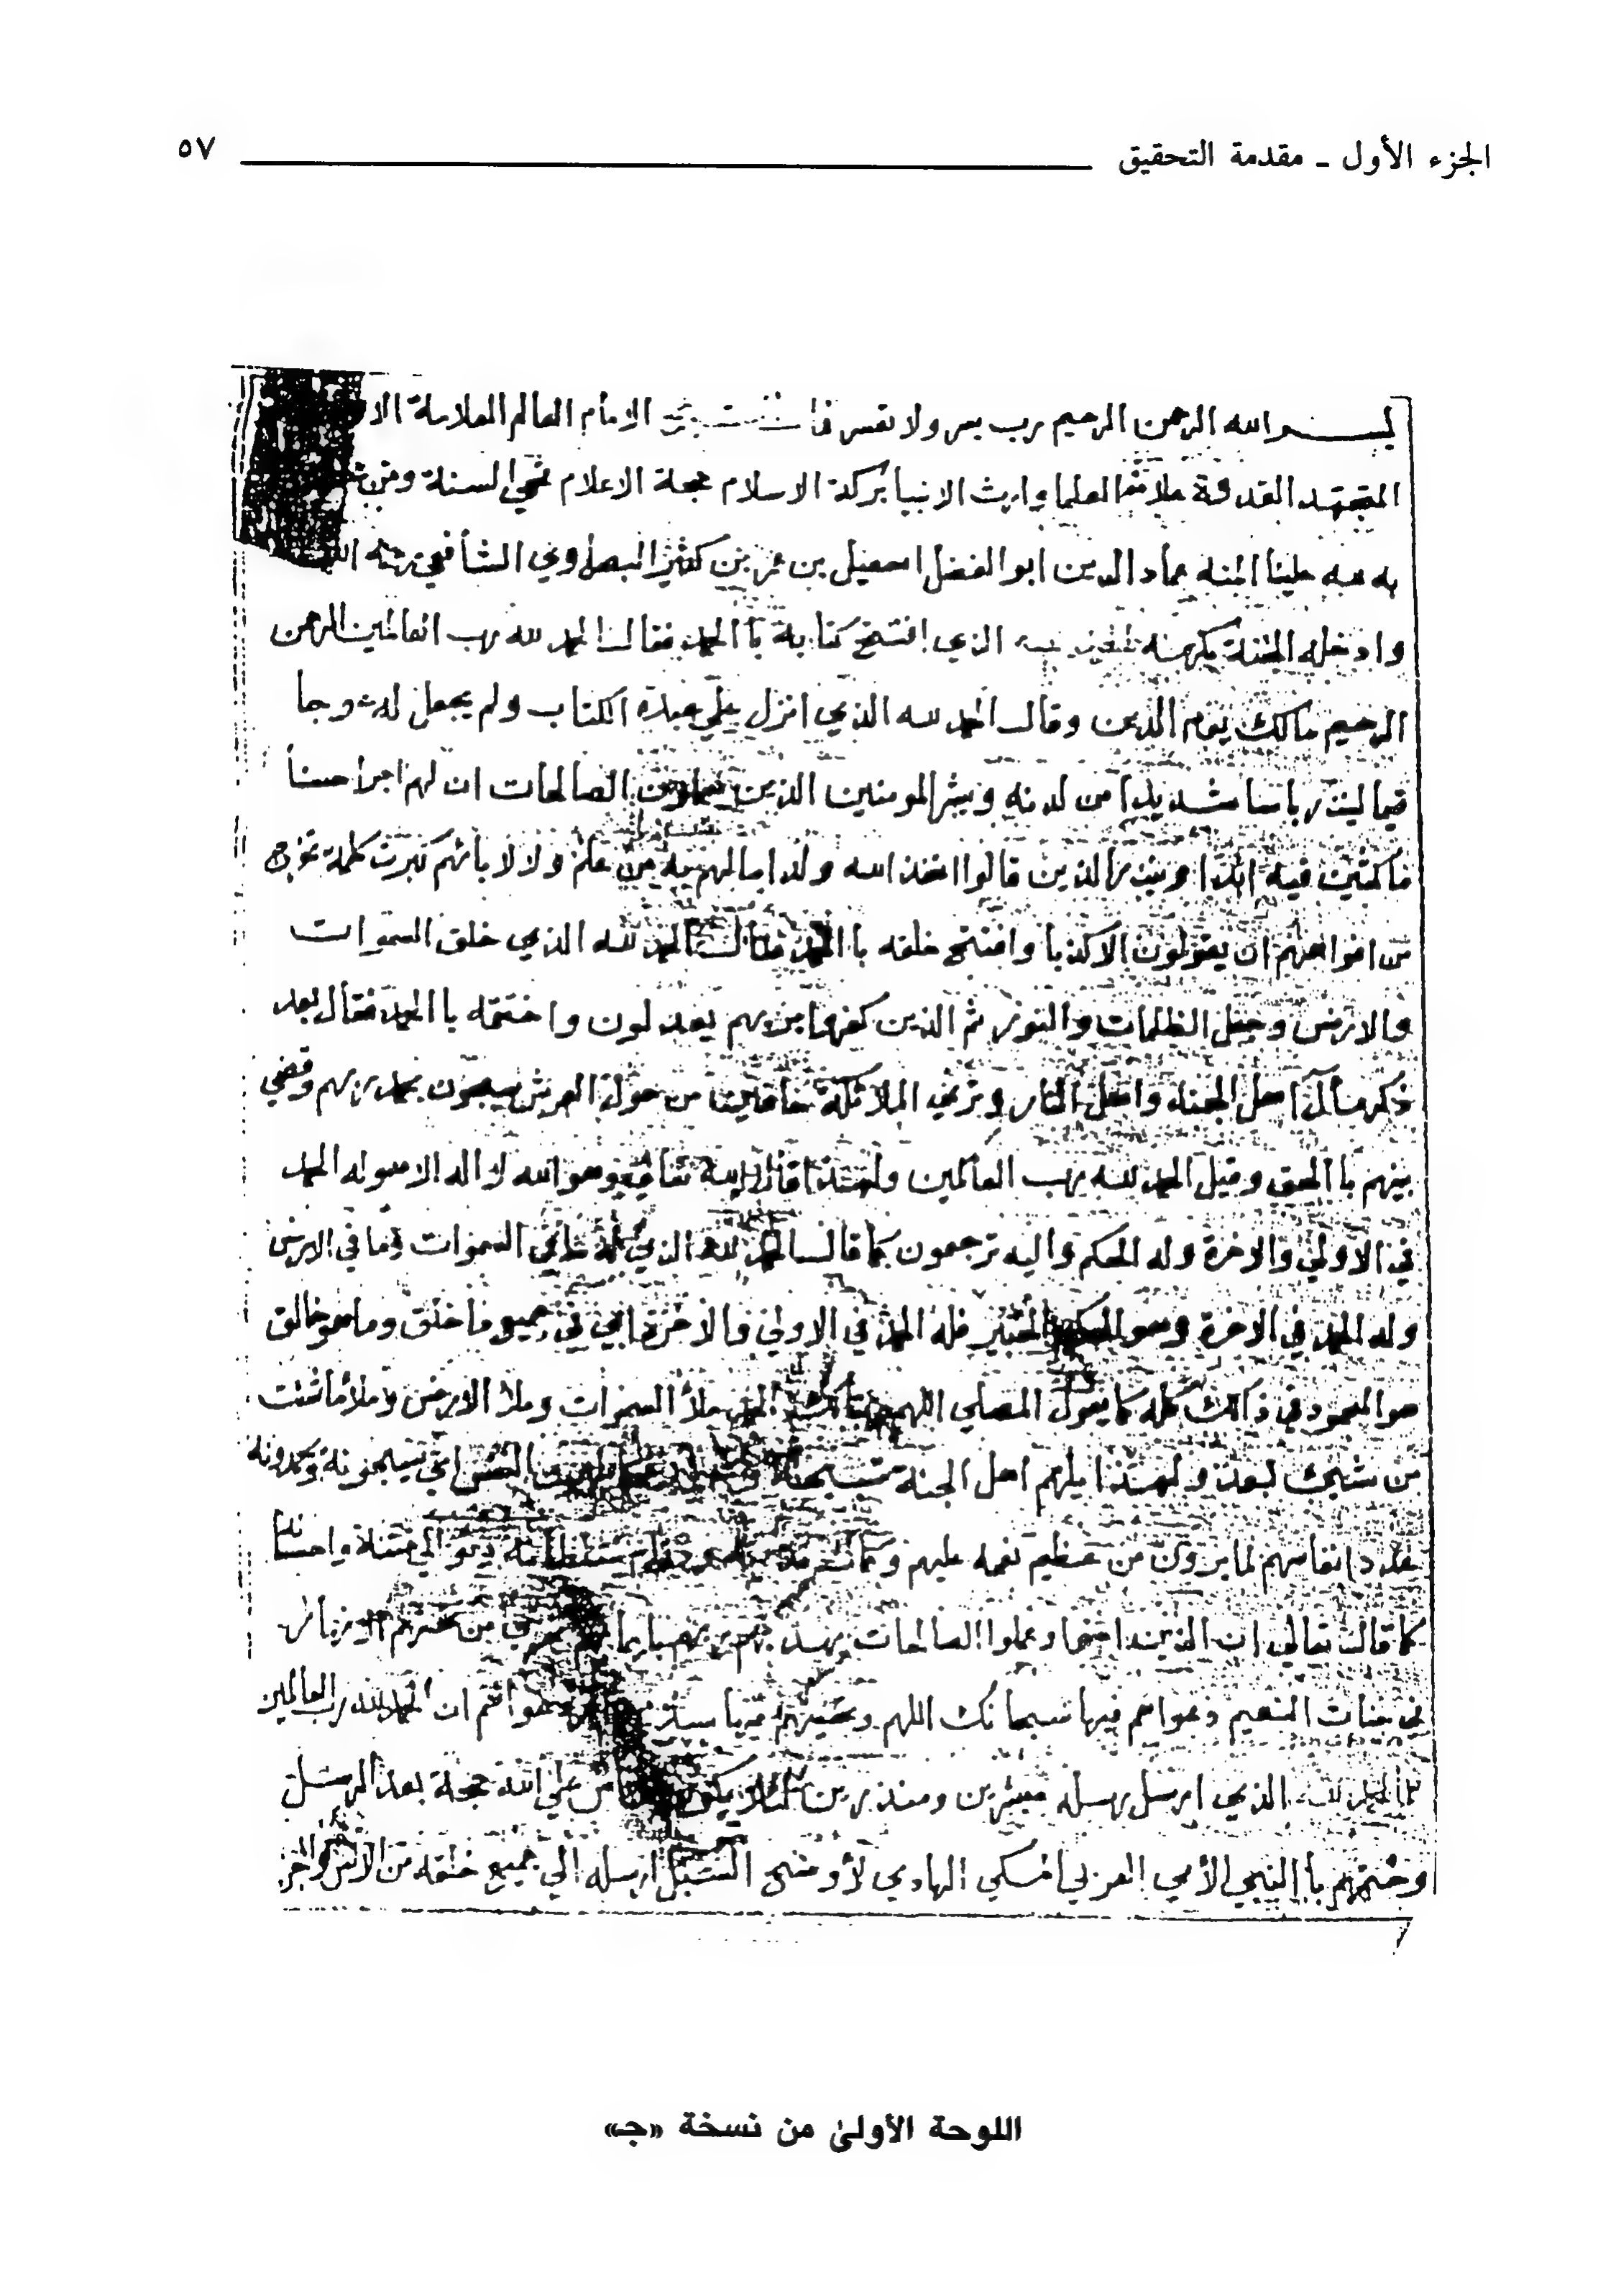 الجزء الأول ـ مقدمة التحقيق ٥٧
بسم الله الرحمن الرحيم رب يسر ولا تعسر الامام العالم العلامة
القدوة العلما وارث الانبيا بركة الاسلام حجة الاعلام محي السنة ومن
به علينا المنه عماد الدين ابو الفضل اسمعيل بن عمر بن كثير البصراوي الشافعي
وادخله الجنة بكرمه الذي افتتح كتابه با الحمد فقال الحمد لله رب العالمين الرحمن
الرحيم مالك يوم الدين وقال الحمد لله الذي انزل على عبده الكتاب ولم يجعل له عوجا
قيما لينذر باسا شديدا من لدنه ويبشر المومنين الذين يعملون الصالحات ان لهم اجرا حسنا
ماكثين فيه ابدا وينذر الذين قالوا اتخذ الله ولدا مالهم به من علم ولا لابائهم كبرت كلمة تخرج
من افواههم ان يقولون الا كذبا وافتتح خلقه با الحمد فقال الحمد لله الذي خلق السموات
والارض وجعل الظلمات والنور ثم الذين كفروا بربهم يعدلون واختتمه با الحمد فقال بعد
ذكر مآل اهل الجنة واهل النار وترى الملائكة حافين من حول العرش يسبحون بحمد ربهم وقضي
بينهم با الحق وقيل الحمد لله رب العالمين ولهذا قال الله تعالى وهو الله لا اله الا هو له الحمد
في الاولى والاخرة وله الحكم واليه ترجعون كما قال الحمد لله الذي له مافي السموات وما في الارض
وله الحمد في الاخرة وهو الحكيم الخبير فله الحمد في الاولى والاخرة اي في جميع ما خلق وما هو خالق
هو المحمود في ذالك كله كما يقول المصلي اللهم ربنا لك الحمد ملأ السموات وملأ الارض وملأ ما شئت
من شيئ بعد ولهذا يلهم اهل الجنة النفس اي يسبحونه ويحمدونه
عدد انفاسهم لما يرون من عظيم نعمه عليهم
كما قال تعالى ان الذين امنوا وعملوا الصالحات يهديهم ربهم بايمانهم تجري من تحتهم الانهار
في جنات النعيم دعواهم فيها سبحانك اللهم وتحيتهم فيها سلام دعواهم ان الحمد لله رب العالمين
الذي ارسل رسله مبشرين ومنذرين لئلا يكون للناس على الله حجة بعد الرسل
وختمهم با النبي الأمي العربي المكي الهادي لأوضح السبل ارسله الى جميع خلقه من الانس والجن
اللوحة الأولىٰ من نسخة «جـ»